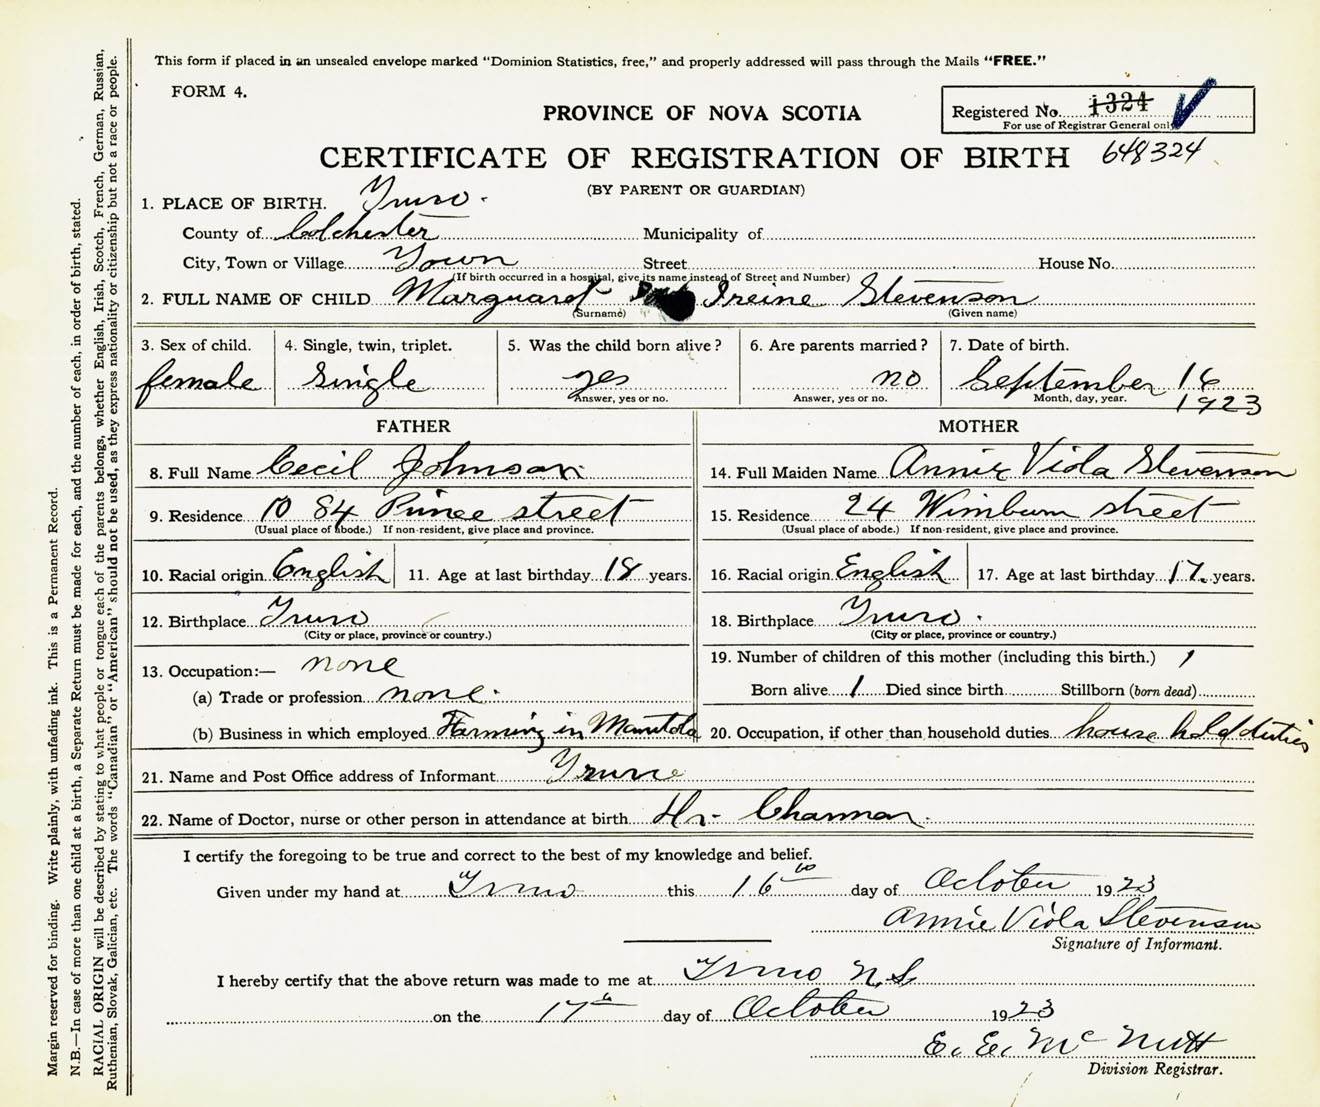 This form if placed in an unsealed envelope marked "Dominion Statistics, free," and properly addressed will pass through the Mails "FREE."
FORM 4.
Registered No. 1324
For use of Registrar General only
PROVINCE OF NOVA SCOTIA
CERTIFICATE OF REGISTRATION OF BIRTH 648324
(BY PARENT OR GUARDIAN)
1. PLACE OF BIRTH. Truro.
County of Colchester Municipality of
City, Town or Village Town Street House No.
(If birth occurred in a hospital, give its name instead of Street and Number)
2. FULL NAME OF CHILD Marguaret Ireine Stevenson
(Surname) (Given name)
3. Sex of child. 4. Single, twin, triplet. 5. Was the child born alive? 6. Are parents married? 7. Date of birth.
female Single yes no September 16
Answer, yes or no. Answer, yes or no. Month, day, year. 1923
FATHER MOTHER
8. Full Name Cecil Johnson 14. Full Maiden Name Annie Viola Stevenson
9. Residence 84 Prince street 15. Residence 24 Wimburn street
(Usual place of abode.) If non-resident, give place and province. (Usual place of abode.) If non-resident, give place and province.
10. Racial origin English 11. Age at last birthday 18 years. 16. Racial origin English 17. Age at last birthday 17 years.
12. Birthplace Truro 18. Birthplace Truro.
(City or place, province or country.) (City or place, province or country.)
13. Occupation:— none 19. Number of children of this mother (including this birth.) 1
(a) Trade or profession none. Born alive 1 Died since birth Stillborn (born dead)
(b) Business in which employed Farming in Manitoba 20. Occupation, if other than household duties house hold duties
21. Name and Post Office address of Informant Truro
22. Name of Doctor, nurse or other person in attendance at birth Dr. Charman.
I certify the foregoing to be true and correct to the best of my knowledge and belief.
Given under my hand at Truro this 16 day of October 1923
Annie Viola Stevenson
Signature of Informant.
I hereby certify that the above return was made to me at Truro N.S.
on the 17th day of October 1923
E. E. McNutt
Division Registrar.
Margin reserved for binding. Write plainly, with unfading ink. This is a Permanent Record.
N.B.—In case of more than one child at a birth, a Separate Return must be made for each, and the number of each, in order of birth, stated.
RACIAL ORIGIN will be described by stating to what people or tongue each of the parents belongs, whether English, Irish, Scotch, French, German, Russian,
Ruthenian, Slovak, Galician, etc. The words "Canadian" or "American" should not be used, as they express nationality or citizenship but not a race or people.